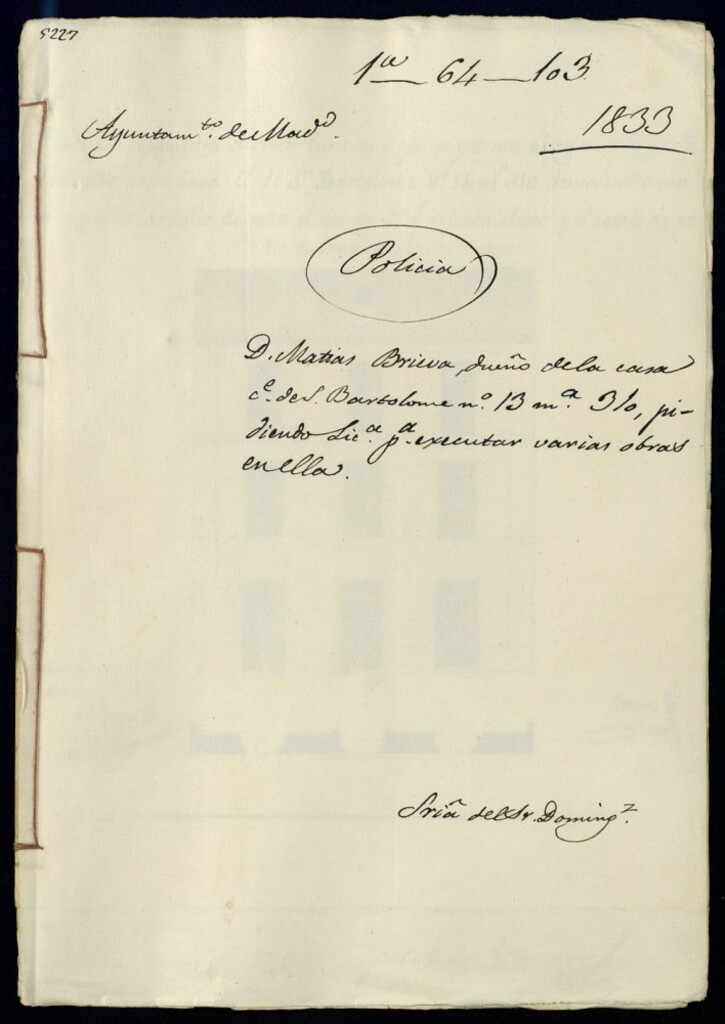 5227
1ª 64 103
Ayuntamto. de Madd.
1833
Policia
D. Matias Brieva, dueño de la casa
ce. de S. Bartolome nº. 13 mª. 310, pi-
diendo Lica. pa. executar varias obras
en ella.
Sriã del Sr. Domingz.